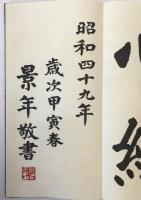 心経
昭和四十九年
歳次甲寅春
景年敬書